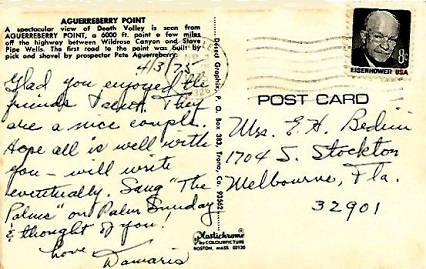 AGUERREBERRY POINT
A spectacular view of Death Valley is seen from
AGUERREBERRY POINT, a 6000 ft. point a few miles
off the highway between Wildrose Canyon and Stove
Pipe Wells. The first road to the point was built by
pick and shovel by prospector Pete Aguerreberry.
4/3/75
Glad you enjoyed the
friends I sent. They
are a nice couple.
Hope all is well with
you - will write
eventually. Sang "The
Palms" on Palm Sunday
& thought of you!
Love
Damaris
Desert Graphic, P. O. Box 383, Trona, Co. 93562
Plastichrome
by COLOURPICTURE
BOSTON, MASS 02130
EISENHOWER USA
8c
POST CARD
Mrs. E. H.
1704 S. Stockton
Melbourne, Fla.
32901